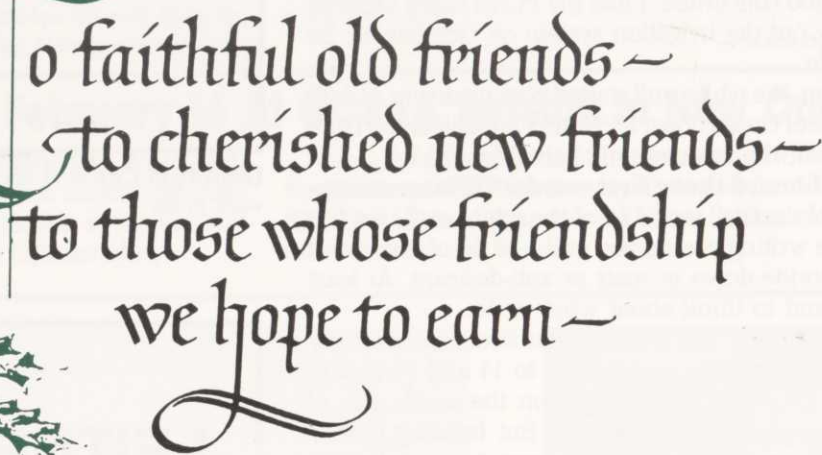 o faithful old friends –
to cherished new friends –
to those whose friendship
we hope to earn –